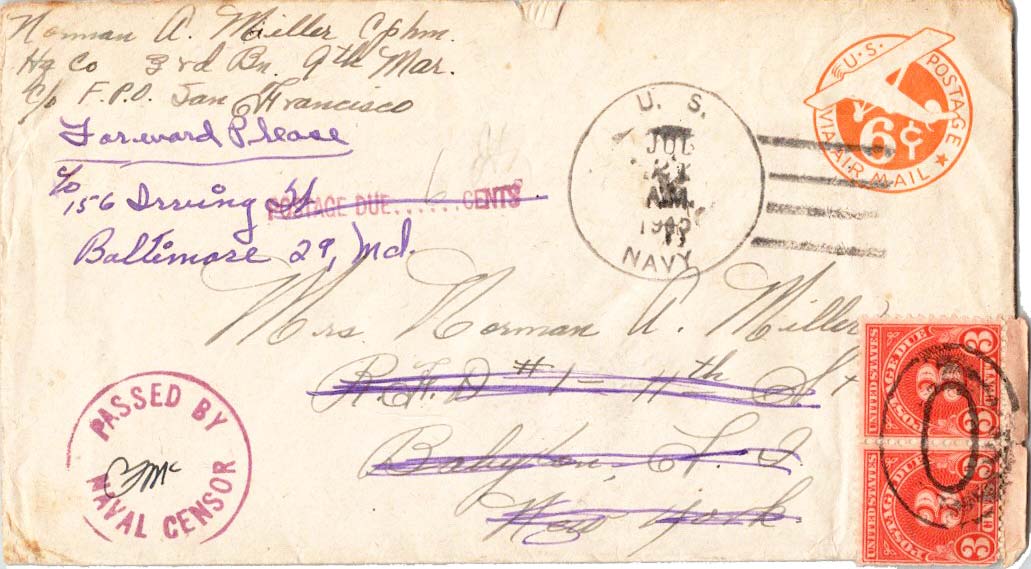 Norman A. Miller Cphm.
Hq Co 3rd Bn. 9th Mar.
c/o F.P.O. San Francisco
Forward Please
c/o
156 Irving St
Baltimore 29, Md.
POSTAGE DUE......6 CENTS
U. S.
JUL
A.M.
NAVY
U.S. POSTAGE
6¢
VIA AIR MAIL
Mrs. Norman A. Miller
R.F.D #1 - 11th St
Babylon, L. I
New York
PASSED BY
NAVAL CENSOR
UNITED STATES
POSTAGE DUE
3
3
CENTS
UNITED STATES
POSTAGE DUE
3
3
CENTS